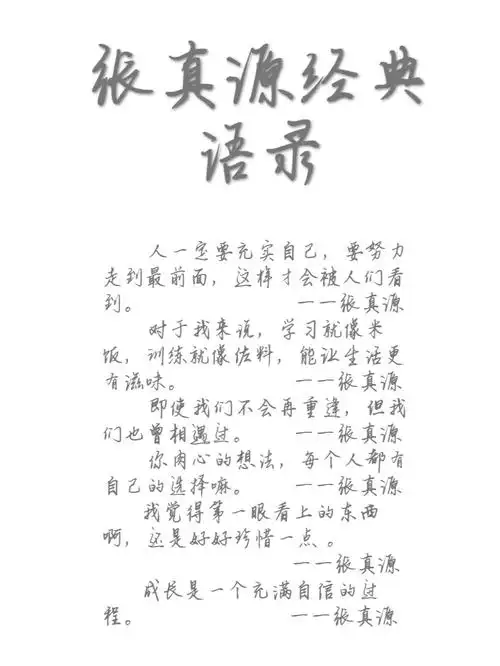 张真源经典
语录
人一定要充实自己，要努力
走到最前面，这样才会被人们看
到。 ——张真源
对于我来说，学习就像米
饭，训练就像佐料，能让生活更
有滋味。 ——张真源
即使我们不会再重逢，但我
们也曾相遇过。 ——张真源
你内心的想法，每个人都有
自己的选择嘛。 ——张真源
我觉得第一眼看上的东西
啊，还是好好珍惜一点。
——张真源
成长是一个充满自信的过
程。 ——张真源